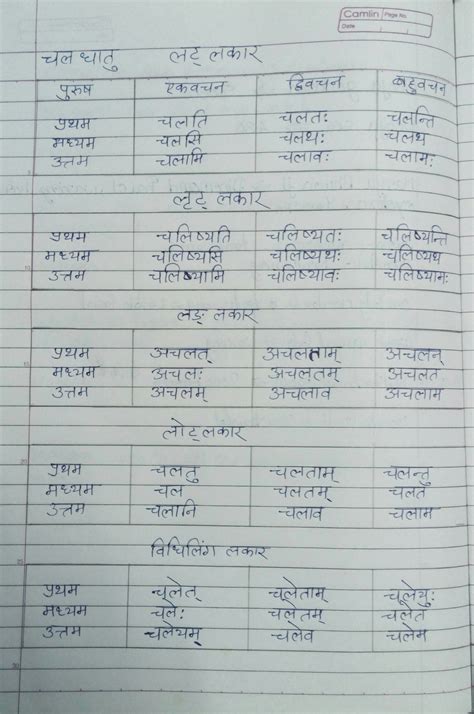 Camlin Page No.
Date
चल धातु लट् लकार
पुरुष एकवचन द्विवचन बहुवचन
प्रथम चलति चलतः चलन्ति
मध्यम चलसि चलथः चलथ
उत्तम चलामि चलावः चलामः
लृट् लकार
प्रथम चलिष्यति चलिष्यतः चलिष्यन्ति
मध्यम चलिष्यसि चलिष्यथः चलिष्यथ
उत्तम चलिष्यामि चलिष्यावः चलिष्यामः
लङ् लकार
प्रथम अचलत् अचलताम् अचलन्
मध्यम अचलः अचलतम् अचलत
उत्तम अचलम् अचलाव अचलाम
लोट् लकार
प्रथम चलतु चलताम् चलन्तु
मध्यम चल चलतम् चलत
उत्तम चलानि चलाव चलाम
विधिलिंग लकार
प्रथम चलेत् चलेताम् चलेयुः
मध्यम चलेः चलेतम् चलेत
उत्तम चलेयम् चलेव चलेम